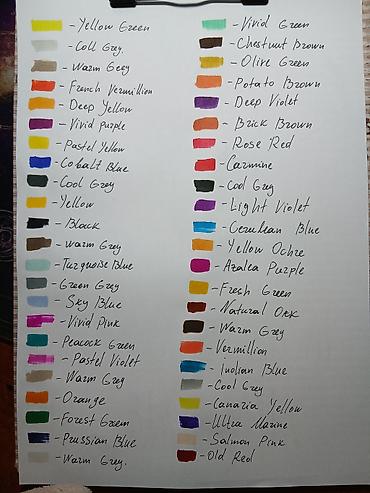 - Yellow Green
- Coll Grey
- Warm Grey
- French Vermillion
- Deep Yellow
- Vivid purple
- Pastel Yellow
- Cobalt Blue
- Cool Grey
- Yellow
- Black
- Warm Grey
- Turquoise Blue
- Green Grey
- Sky Blue
- Vivid Pink
- Peacock Green
- Pastel Violet
- Warm Grey
- Orange
- Forest Green
- Prussian Blue
- Warm Grey.
- Vivid Green
- Chestnut Brown
- Olive Green
- Potato Brown
- Deep Violet
- Brick Brown
- Rose Red
- Carmine
- Cool Grey
- Light Violet
- Cerulean Blue
- Yellow Ochre
- Azalea Purple
- Fresh Green
- Natural Oak
- Warm Grey
- Vermillion
- Indian Blue
- Cool Grey
- Canaria Yellow
- Ultra Marine
- Salmon Pink
- Old Red